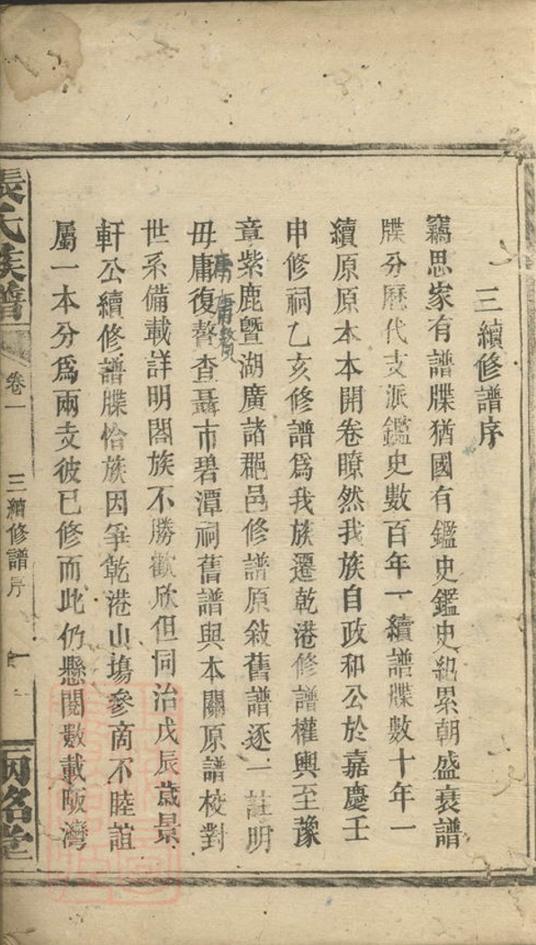 三續修譜序
竊思家有譜牒猶國有鑑史鑑史紀累朝盛衰譜
牒分歷代支派鑑史數百年一續譜牒數十年一
續原原本本開卷瞭然我族自政和公於嘉慶壬
申修祠乙亥修譜爲我族遷乾港修譜權輿至豫
章紫鹿曁湖廣諸郡邑修譜原敍舊譜逐一註明
毋庸復贅查聶市碧潭祠舊譜與本關原譜校對
世系備載詳明閤族不勝歡欣但同治戊辰歲景
軒公續修譜牒恰族因爭乾港山塲參商不睦誼
屬一本分爲兩支彼已修而此仍懸閱數載陂灣
張氏族譜
卷一
三續修譜序
一
兩銘堂